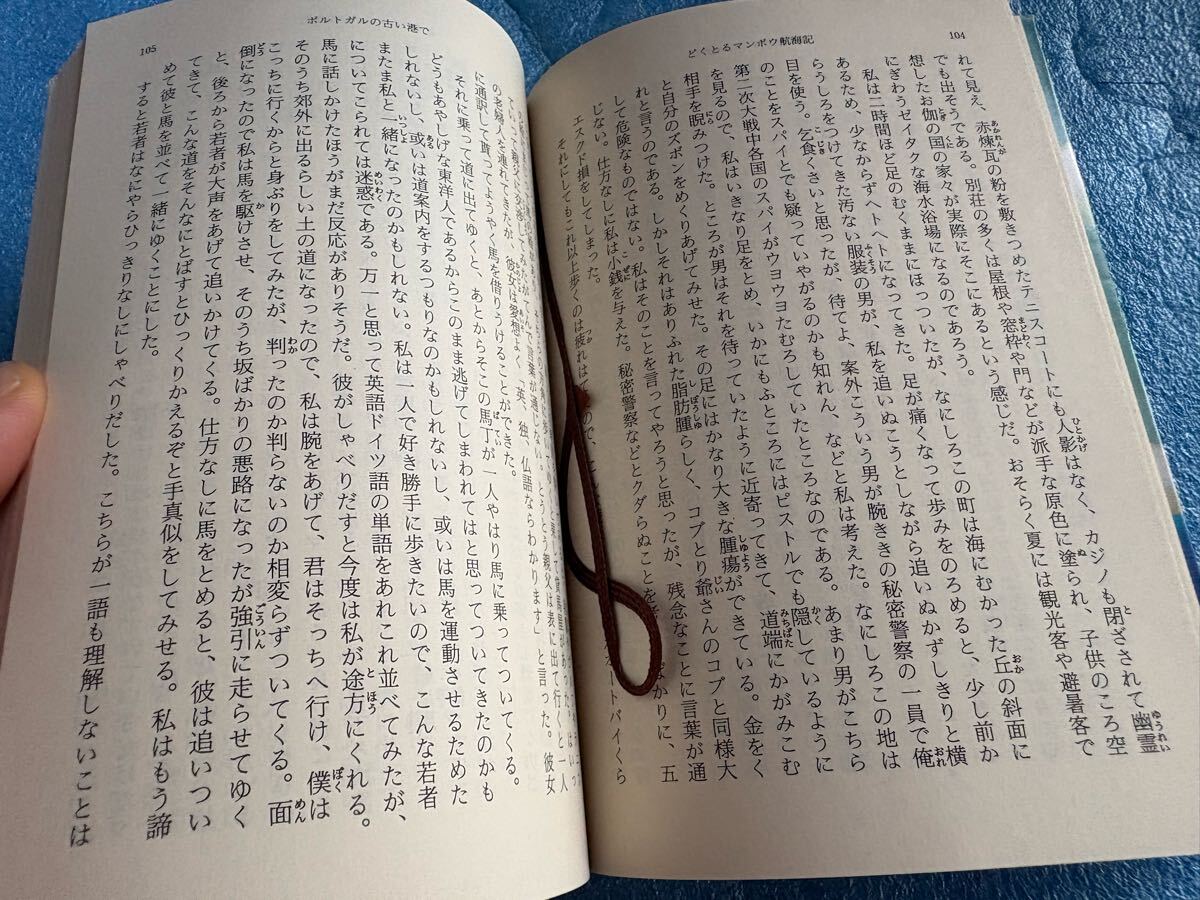 104
どくとるマンボウ航海記
れて見え、赤煉瓦の粉を敷きつめたテニスコートにも人影はなく、カジノも閉ざされて幽霊
でも出そうである。別荘の多くは屋根や窓枠や門などが派手な原色に塗られ、子供のころ空
想したお伽の国の家々が実際にそこにあるという感じだ。おそらく夏には観光客や避暑客で
にぎわうゼイタクな海水浴場になるのであろう。
私は二時間ほど足のむくままにほっついたが、なにしろこの町は海にむかった丘の斜面に
あるため、少なからずヘトヘトになってきた。足が痛くなって歩みをのろめると、少し前か
らうしろをつけてきた汚ない服装の男が、私を追いぬこうとしながら追いぬかずしきりと横
目を使う。乞食くさいと思ったが、待てよ、案外こういう男が腕ききの秘密警察の一員で俺
のことをスパイとでも疑っていやがるのかも知れん、などと私は考えた。なにしろこの地は
第二次大戦中各国のスパイがウヨウヨたむろしていたところなのである。あまり男がこちら
を見るので、私はいきなり足をとめ、いかにもふところにはピストルでも隠しているように
相手を睨みつけた。ところが男はそれを待っていたように近寄ってきて、道端にかがみこむ
と自分のズボンをめくりあげてみせた。その足にはかなり大きな腫瘍ができている。金をく
れと言うのである。しかしそれはありふれた脂肪腫らしく、コブとり爺さんのコブと同様大
して危険なものではない。私はそのことを言ってやろうと思ったが、残念なことに言葉が通
じない。仕方なしに私は小銭を与えた。秘密警察などとクダらぬことを ばかりに、五
エスクド損をしてしまった。
それにしてもこれ以上歩くのは疲れは ので、 ートバイくら
ポルトガルの古い港で
105
ていって親父に交渉してみたがてんで言葉が通じない。とうとう親父は表に出て行くと一人
の老婦人を連れてきたが、彼女は愛想よく「英、独、仏語ならわかります」と言った。彼女
に通訳して貰ってようやく馬を借りうけることができた。
それに乗って道に出てゆくと、あとからそこの馬丁が一人やはり馬に乗ってついてくる。
どうもあやしげな東洋人であるからこのまま逃げてしまわれてはと思ってついてきたのかも
しれないし、或いは道案内をするつもりなのかもしれないし、或いは馬を運動させるためた
またま私と一緒になったのかもしれない。私は一人で好き勝手に歩きたいので、こんな若者
についてこられては迷惑である。万一と思って英語ドイツ語の単語をあれこれ並べてみたが、
馬に話しかけたほうがまだ反応がありそうだ。彼がしゃべりだすと今度は私が途方にくれる。
そのうち郊外に出るらしい土の道になったので、私は腕をあげて、君はそっちへ行け、僕は
こっちに行くからと身ぶりをしてみたが、判ったのか判らないのか相変らずついてくる。面
倒になったので私は馬を駆けさせ、そのうち坂ばかりの悪路になったが強引に走らせてゆく
と、後ろから若者が大声をあげて追いかけてくる。仕方なしに馬をとめると、彼は追いつい
てきて、こんな道をそんなにとばすとひっくりかえるぞと手真似をしてみせる。私はもう諦
めて彼と馬を並べて一緒にゆくことにした。
すると若者はなにやらひっきりなしにしゃべりだした。こちらが一語も理解しないことは